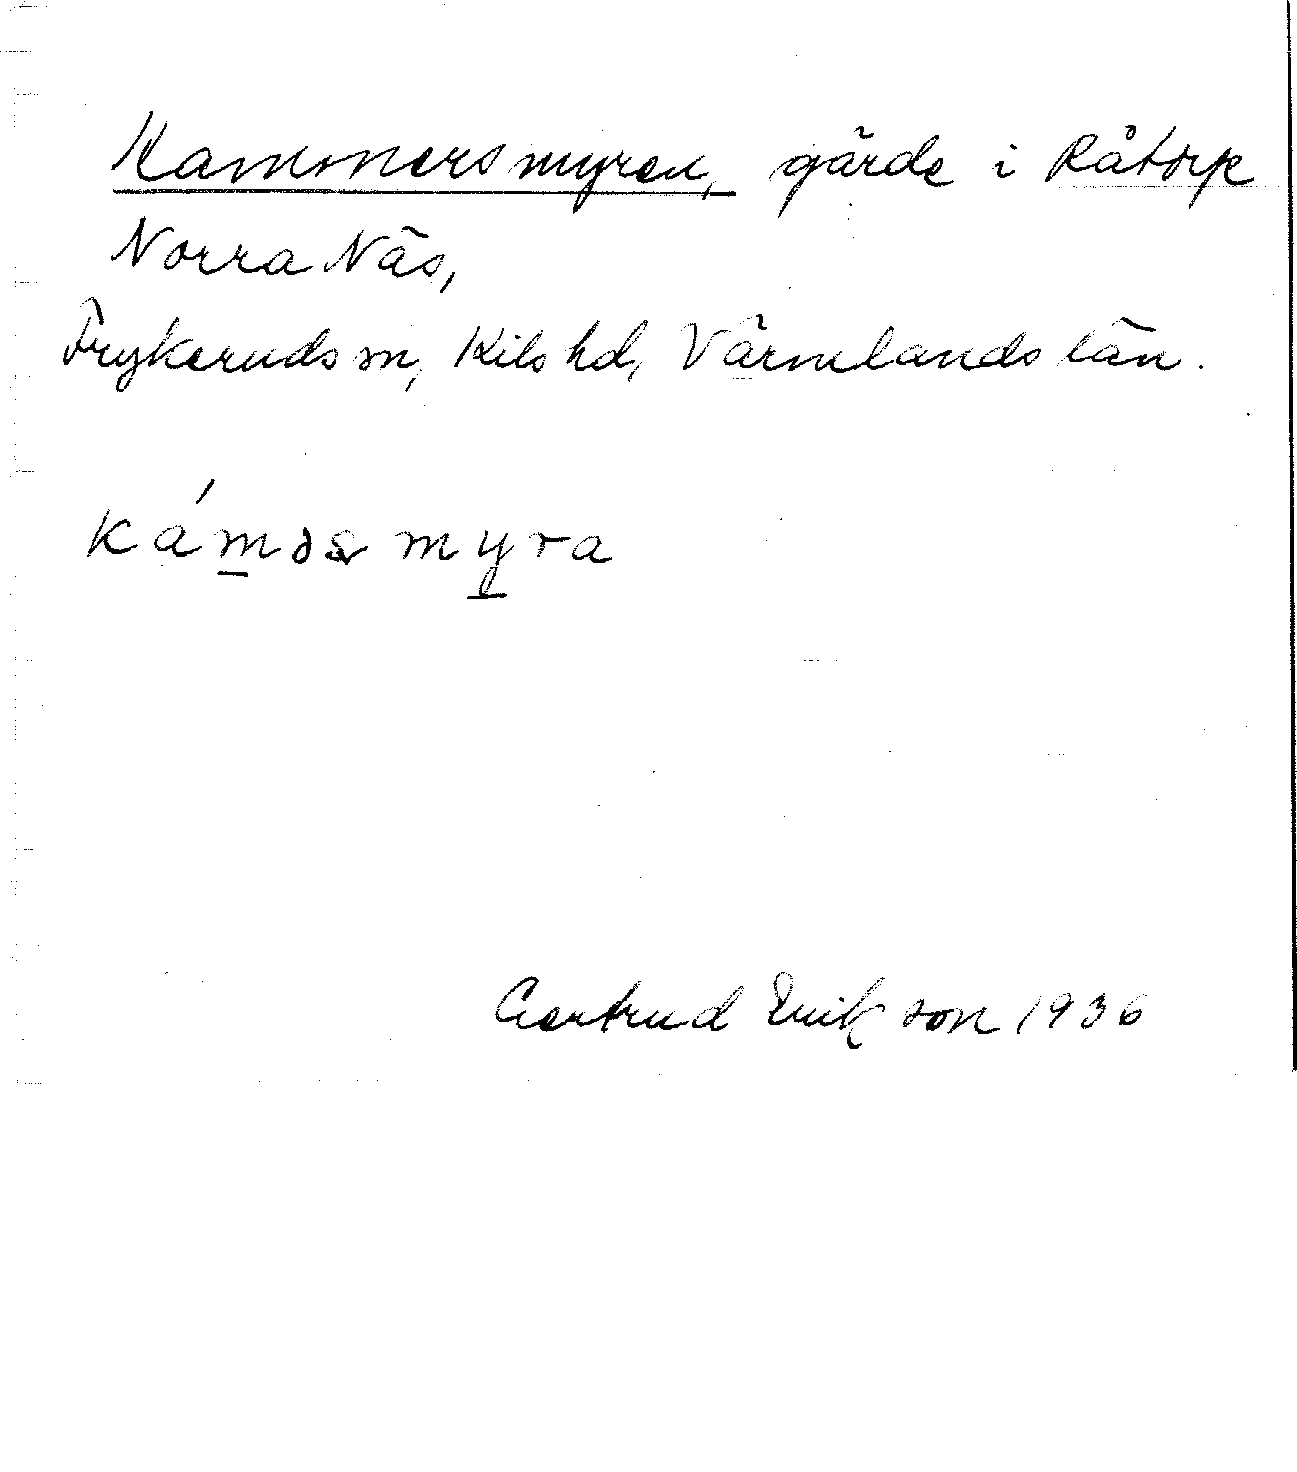 Kammersmyren, gärde i Råtorp
Norra Näs,
Frykeruds sn, Kils hd, Värmlands län.
káməʂmyra
Gertrud Erikson 1936